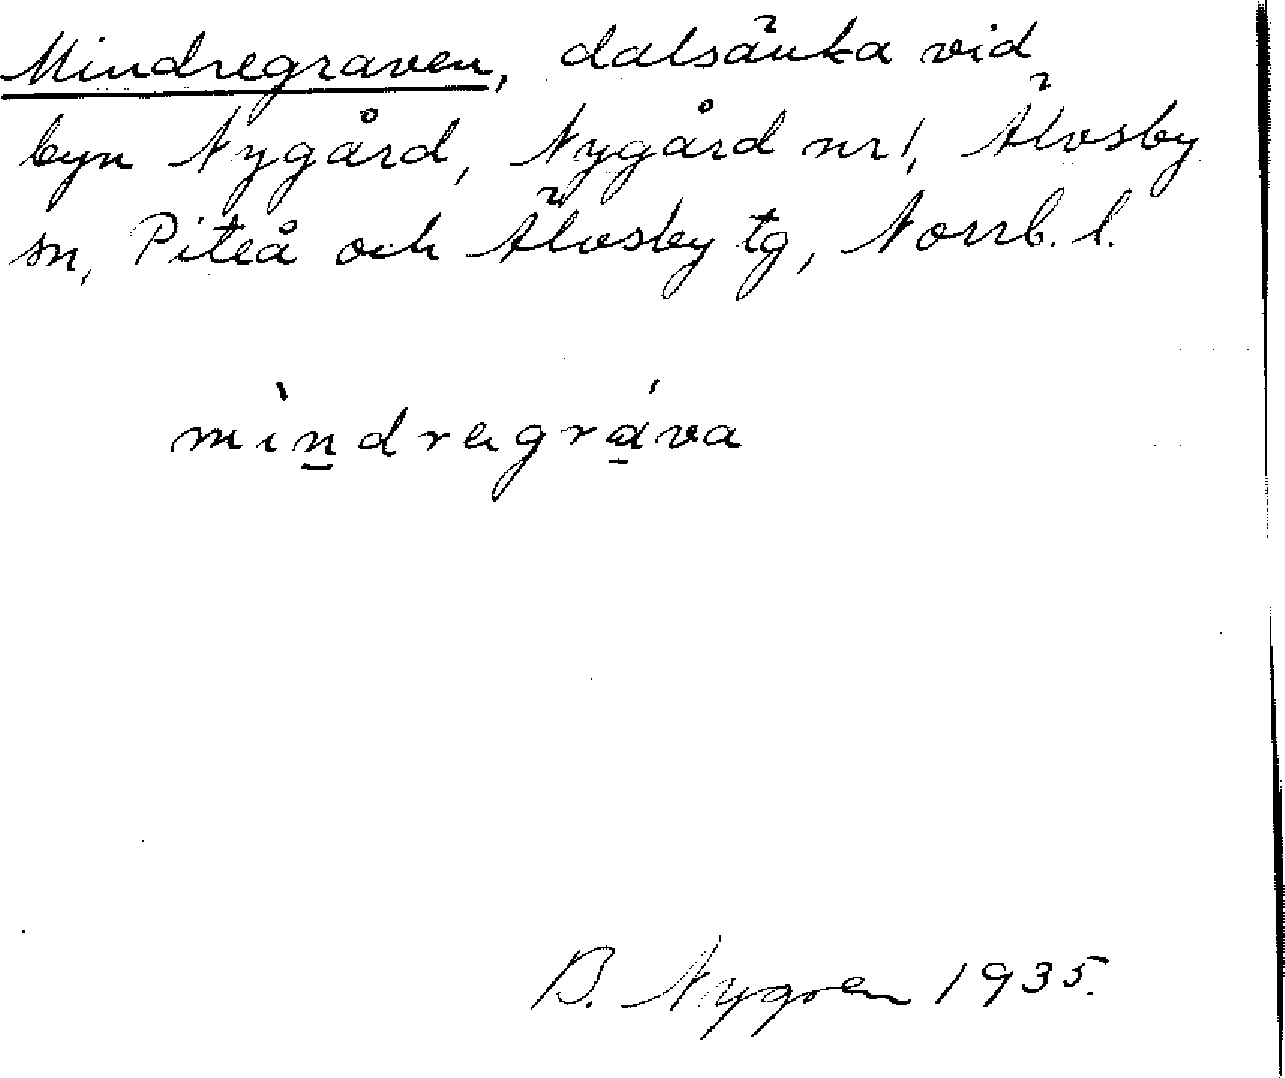 Mindregraven, dalsänka vid
byn Nygård, Nygård nr 1, Älvsby
sn, Piteå och Älvsby tg, Norrb. l.
mìn̲dregrá̲va
B. Nygren 1935.